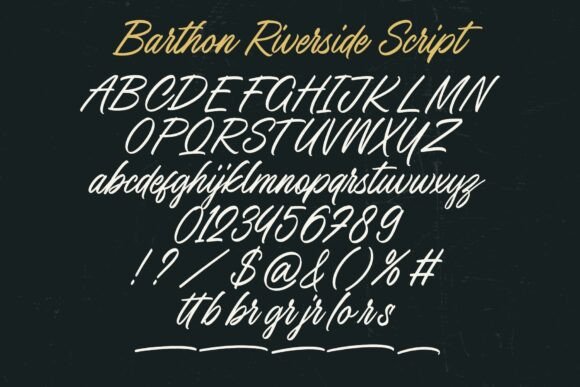 Barthon Riverside Script
ABCDEFGHIJKLMN
OPQRSTUVWXYZ
abcdefghijklmnopqrstuvwxyz
0123456789
!?/$@&()%#
tt b br gr jr lo r s